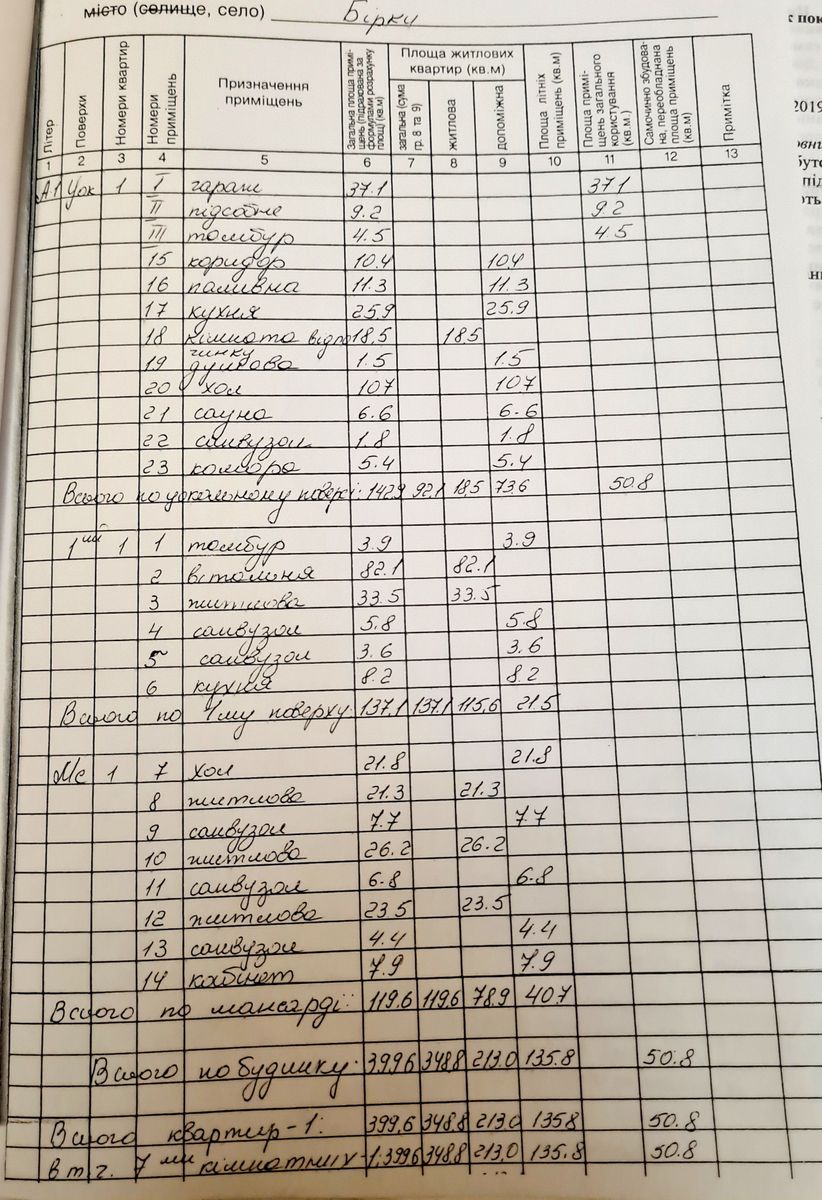 місто (селище, село) Бірки
Літер Поверхи Номери квартир Номери приміщень Призначення приміщень Загальна площа приміщень (підрахована за формулами розрахунку площі) (кв.м) Площа житлових квартир (кв.м) загальна (сума гр. 8 та 9) житлова допоміжна Площа літніх приміщень (кв.м) Площа приміщень загального користування (кв.м.) Самочинно збудована, переобладнана площа приміщень (кв.м) Примітка
1 2 3 4 5 6 7 8 9 10 11 12 13
А1 Цок 1 I гараж 37.1 37.1
II підсобне 9.2 9.2
III тамбур 4.5 4.5
15 коридор 10.4 10.4
16 паливна 11.3 11.3
17 кухня 25.9 25.9
18 кімната відпо 18,5 18.5
чинку
19 душова 1.5 1.5
20 хол 10.7 10.7
21 сауна 6.6 6.6
22 санвузол 1.8 1.8
23 комора 5.4 5.4
Всього по цокольному поверсі: 142.9 92.1 18.5 73.6 50.8
1ий 1 1 тамбур 3.9 3.9
2 вітальня 82.1 82.1
3 житлова 33.5 33.5
4 санвузол 5.8 5.8
5 санвузол 3.6 3.6
6 кухня 8.2 8.2
Всього по 1му поверху: 137.1 137.1 115.6 21.5
Мс 1 7 хол 21.8 21.8
8 житлова 21.3 21.3
9 санвузол 7.7 7.7
10 житлова 26.2 26.2
11 санвузол 6.8 6.8
12 житлова 23.5 23.5
13 санвузол 4.4 4.4
14 кабінет 7.9 7.9
Всього по мансарді: 119.6 119.6 78.9 40.7
Всього по будинку: 399.6 348.8 213.0 135.8 50.8
Всього квартир-1: 399.6 348.8 213.0 135.8 50.8
в т.ч. 7ми кімнатних-1: 399.6 348.8 213.0 135.8 50.8
2019